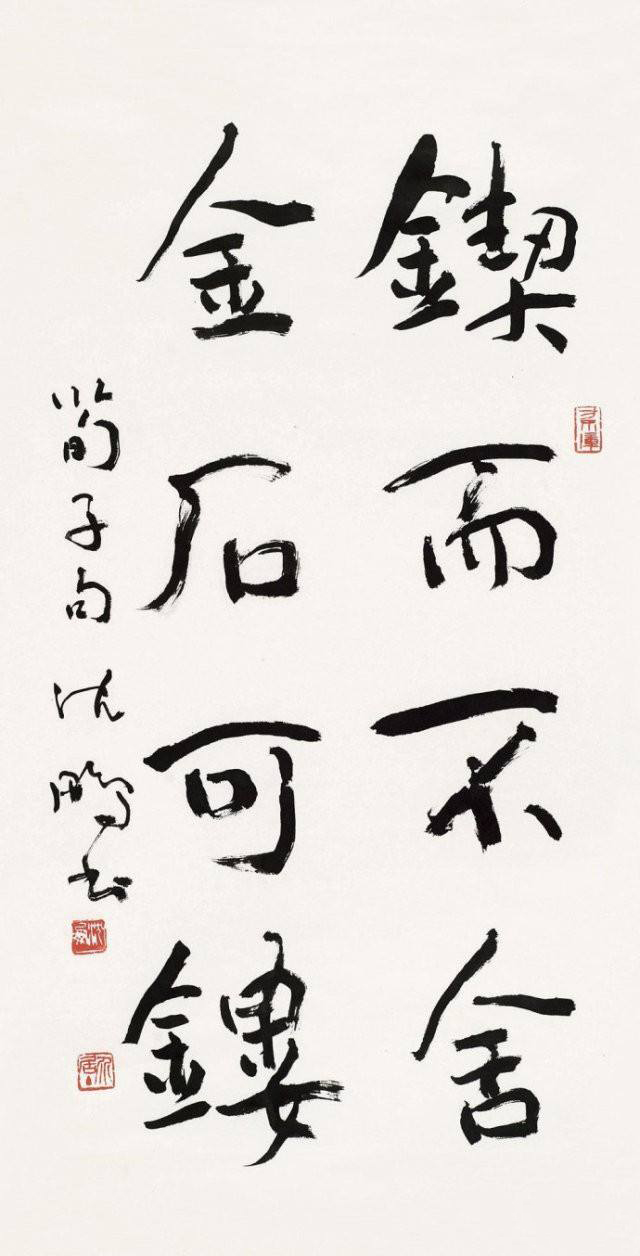 鍥而不舍
金石可鏤
荀子句 沈鵬书